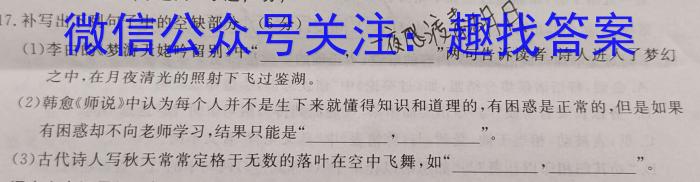 17.补写出下列句子中的空缺部分。(6分)
微信公众号关注:趣找答案
(1)李白《梦游天姥吟留别》中“________,________”两句告诉读者,诗人进入了梦幻
之中,在月夜清光的照射下飞过鉴湖。
(2)韩愈《师说》中认为每个人并不是生下来就懂得知识和道理的,有困惑是正常的,但是如果
有困惑却不向老师学习,结果只能是“________,________”。
(3)古代诗人写秋天常常定格于无数的落叶在空中飞舞,如“________,________”。